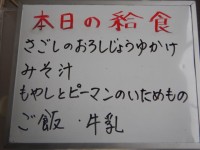 本日の給食
さごしのおろしじょうゆかけ
みそ汁
もやしとピーマンのいためもの
ご飯・牛乳